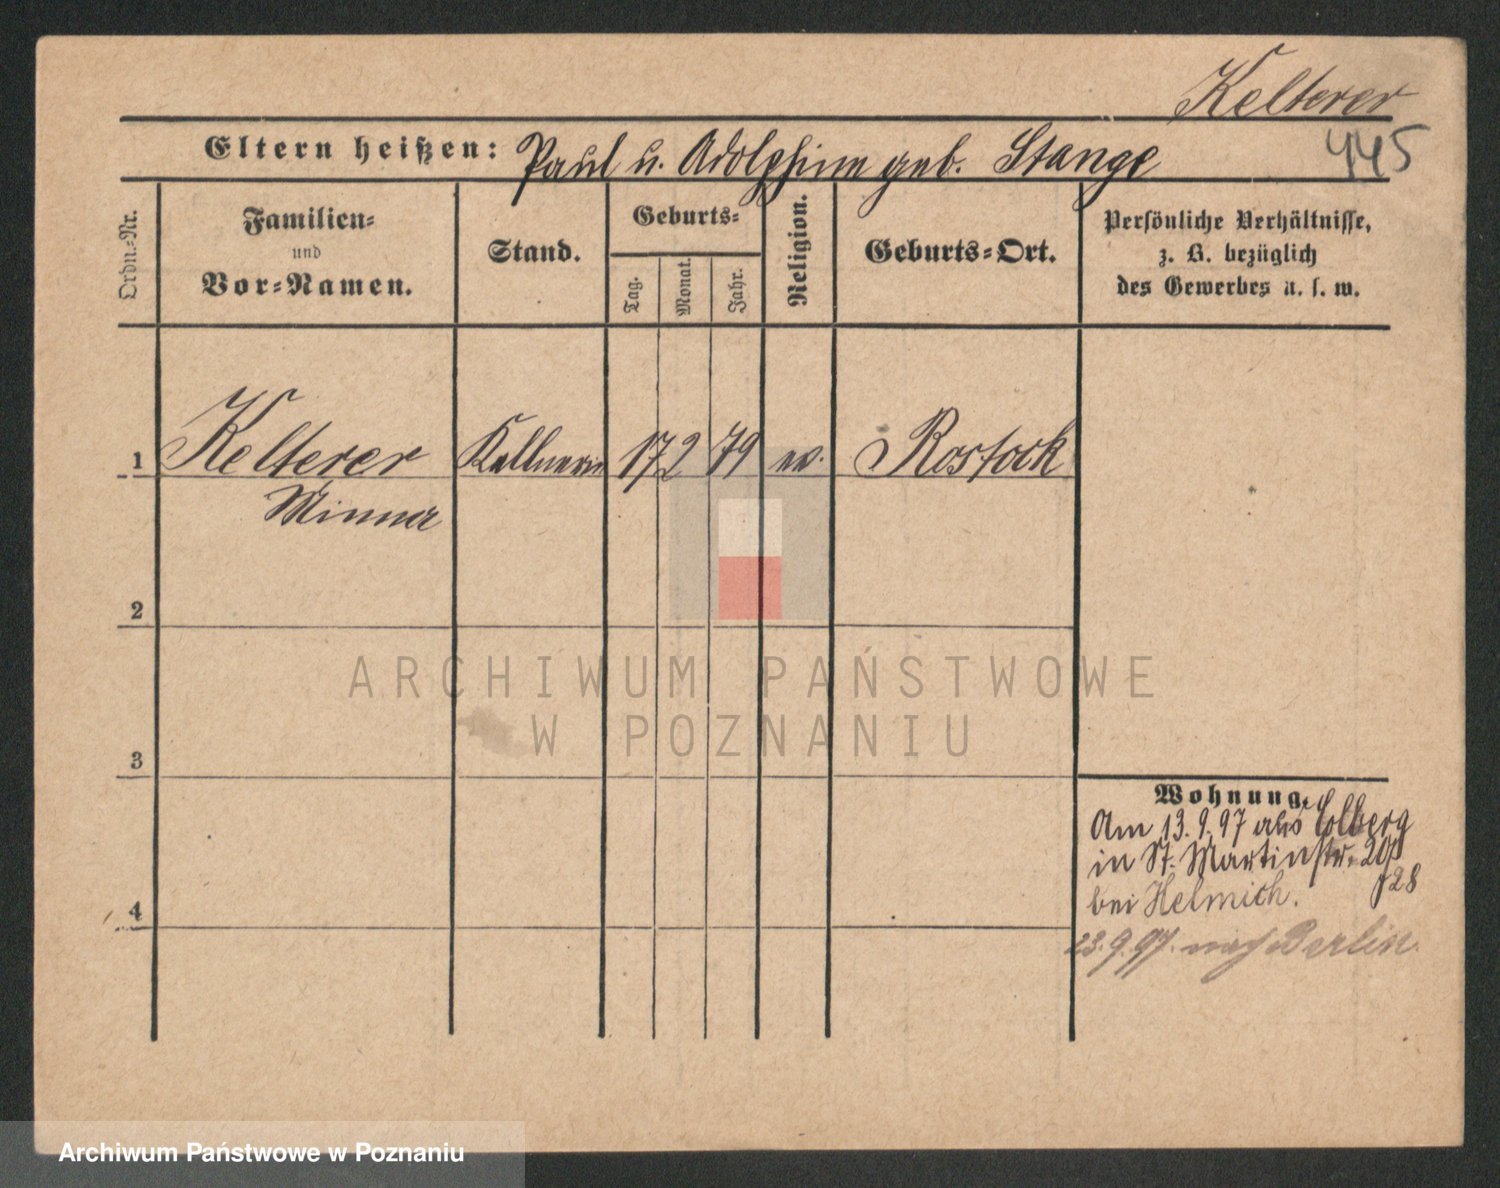 Kelterer
445
Eltern heißen: Paul u. Adolphine geb. Stange
Ordn.-Nr.
Familien-
und
Vor-Namen.
Stand.
Geburts-
Tag.
Monat.
Jahr.
Religion.
Geburts-Ort.
Persönliche Verhältnisse,
z. B. bezüglich
des Gewerbes u. s. w.
1 Kelterer Kellnerin 17 2 79 ev. Rostock
Minna
2
3
4
Wohnung.
Am 13.9.97 aus Colberg
in St. Martinstr. 20
bei Helmich. 28
23.9.97. nach Berlin.
ARCHIWUM PAŃSTWOWE
W POZNANIU
Archiwum Państwowe w Poznaniu